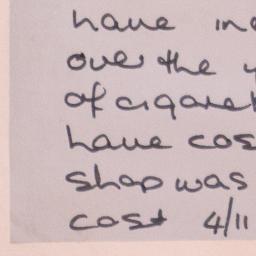 have in
over the
of cigaret
have cos
shop was
cost 4/11